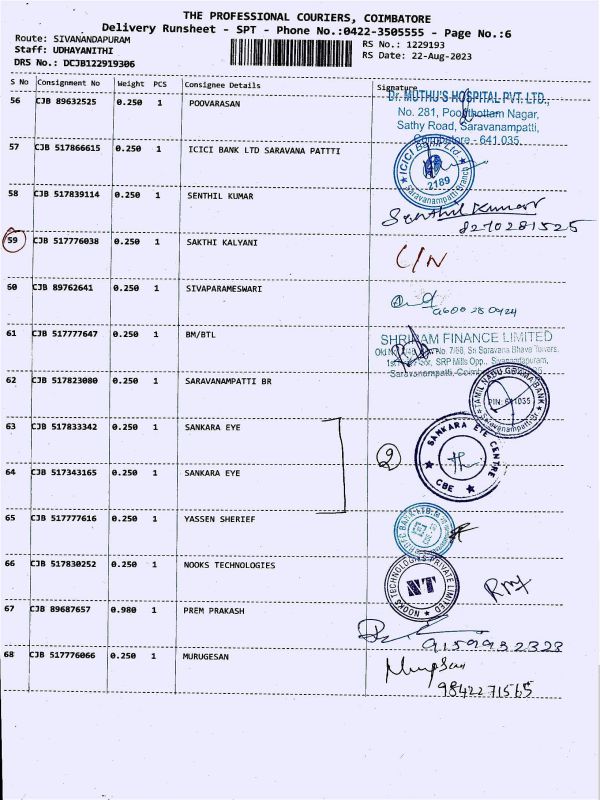 THE PROFESSIONAL COURIERS, COIMBATORE
Delivery Runsheet - SPT - Phone No.:0422-3505555 - Page No.:6
Route: SIVANANDAPURAM RS No.: 1229193
Staff: UDHAYANITHI RS Date: 22-Aug-2023
DRS No.: DCJB122919306
S No Consignment No Weight PCS Consignee Details Signature
56 CJB 89632525 0.250 1 POOVARASAN
Dr. MUTHU'S HOSPITAL PVT. LTD.,
No. 281, Poothottam Nagar,
Sathy Road, Saravanampatti,
Coimbatore - 641 035.
57 CJB 517866615 0.250 1 ICICI BANK LTD SARAVANA PATTTI
ICICI Bank Ltd.
2189
Saravanampatti Branch
58 CJB 517839114 0.250 1 SENTHIL KUMAR
Senthil Kumar
8270281525
59 CJB 517776038 0.250 1 SAKTHI KALYANI
C/N
60 CJB 89762641 0.250 1 SIVAPARAMESWARI
9600 28 0424
61 CJB 517777647 0.250 1 BM/BTL
SHRIRAM FINANCE LIMITED
No. 7/88, Sri Saravana Bhava Towers,
SRP Mills Opp., Sivanandapuram,
Saravanampatti,
62 CJB 517823080 0.250 1 SARAVANAMPATTI BR
TAMIL NADU GRAMA BANK
PIN: 641035
Saravanampatti Br
63 CJB 517833342 0.250 1 SANKARA EYE
2
SANKARA EYE CENTRE
CBE
64 CJB 517343165 0.250 1 SANKARA EYE
65 CJB 517777616 0.250 1 YASSEN SHERIEF
66 CJB 517830252 0.250 1 NOOKS TECHNOLOGIES
NOOKS TECHNOLOGIES PRIVATE LIMITED
NT
67 CJB 89687657 0.980 1 PREM PRAKASH
9159932328
68 CJB 517776066 0.250 1 MURUGESAN
9842271565